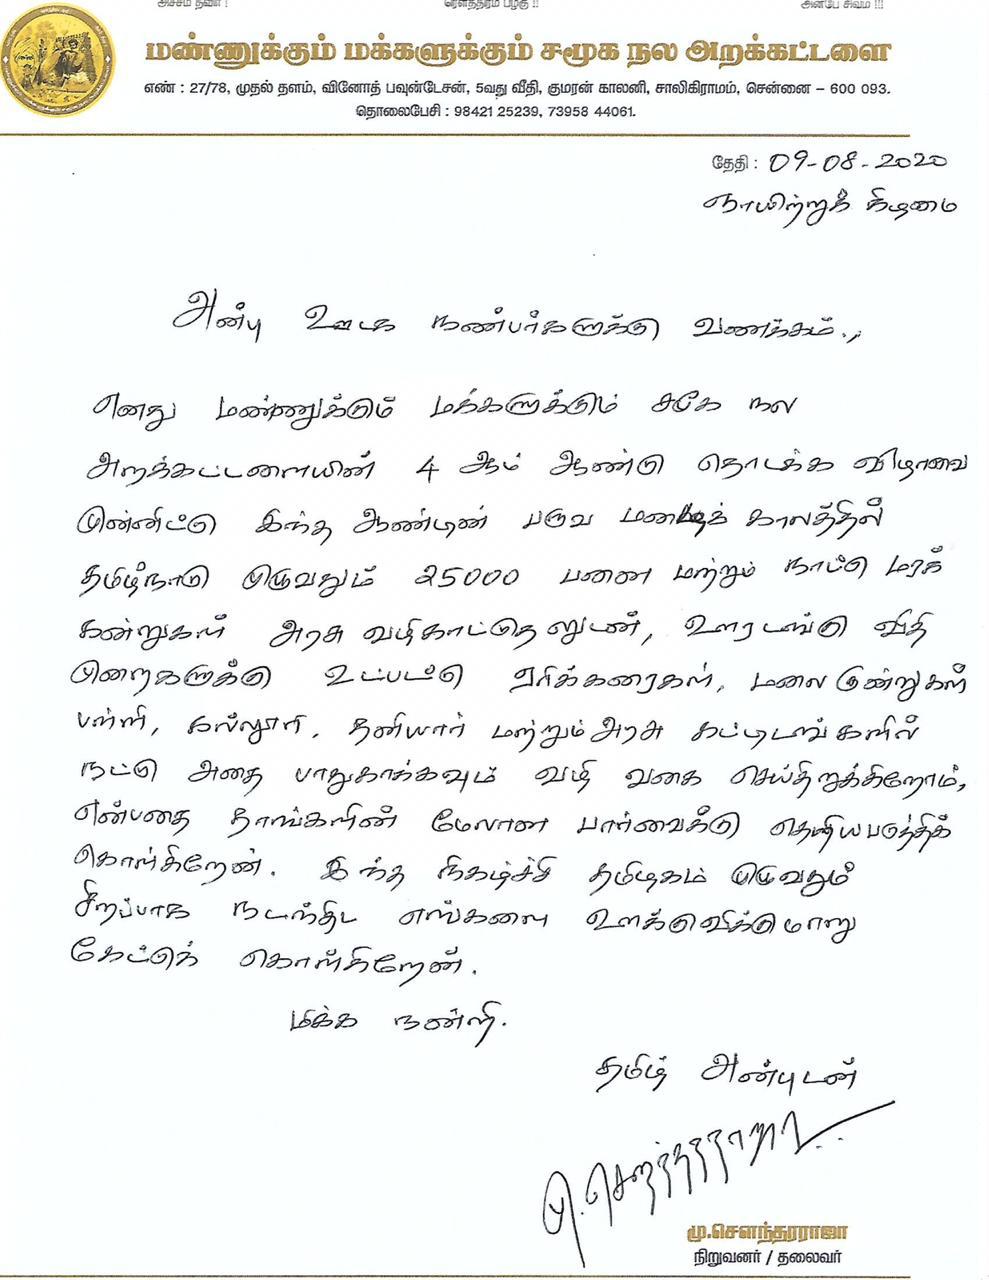 அச்சம் தவிர் !
ரௌத்திரம் பழகு !!
அன்பே சிவம் !!!
மண்ணுக்கும் மக்களுக்கும் சமூக நல அறக்கட்டளை
எண் : 27/78, முதல் தளம், வினோத் பவுன்டேசன், 5வது வீதி, குமரன் காலனி, சாலிகிராமம், சென்னை – 600 093.
தொலைபேசி : 98421 25239, 73958 44061.
தேதி : 09-08-2020
ஞாயிற்றுக் கிழமை
அன்பு ஊடக நண்பர்களுக்கு வணக்கம்.,
எனது மண்ணுக்கும் மக்களுக்கும் சமூக நல
அறக்கட்டளையின் 4 ஆம் ஆண்டு தொடக்க விழாவை
முன்னிட்டு இந்த ஆண்டின் பருவ மழைக் காலத்தில்
தமிழ்நாடு முழுவதும் 25000 பனை மற்றும் நாட்டு மரக்
கன்றுகள் அரசு வழிகாட்டுதலுடன், ஊரடங்கு விதி
முறைகளுக்கு உட்பட்டு ஏரிக்கரைகள், மலை குன்றுகள்
பள்ளி, கல்லூரி, தனியார் மற்றும் அரசு கட்டிடங்களில்
நட்டு அதை பாதுகாக்கவும் வழி வகை செய்திருக்கிறோம்,
என்பதை தாங்களின் மேலான பார்வைக்கு தெரியபடுத்திக்
கொள்கிறேன். இந்த நிகழ்ச்சி தமிழகம் முழுவதும்
சிறப்பாக நடந்திட எங்களை ஊக்குவிக்குமாறு
கேட்டுக் கொள்கிறேன்.
மிக்க நன்றி.
தமிழ் அன்புடன்
மு.சௌந்தரராஜா
மு.சௌந்தரராஜா
நிறுவனர் / தலைவர்